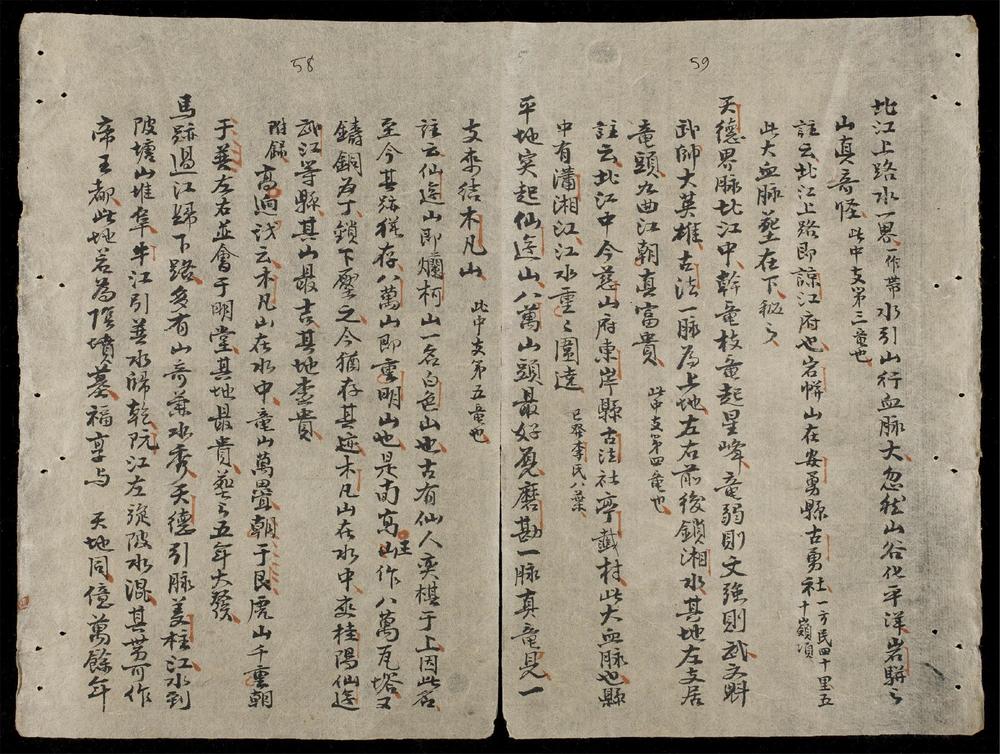 59
北江上路水一畧一作帶水引山行血脉大忽然山谷化平洋岩騈之
山真奇怪此中支第三竜也
註云北江上路即諒江府也岩帡山在安勇縣古勇社一方民四十里五十嶺項
此大血脉塟在下秘之
天德界脉北江中幹竜枝竜起星峰竜弱則文強則武文斟
武帥大英雄古法一脉為上地左右前後鎖湘水其地左支居
竜頭九曲江朝真富貴此中支第四竜也
註云北江中今慈山府東岸縣古法社亭蓺村此大血脉也縣
中有瀟湘江江水重々圍遶已發李氏八葉
平地突起仙遊山八萬山頭最好覓磨勘一脉真竜見一
58
支來結木凡山此中支第五竜也
註云仙遊山即爛柯山一名白色山也古有仙人奕棋于上因此名
至今其跡猶存八萬山即重明山也是南高王山作八萬瓦塔又
鑄銅為丁鎖下壓之今猶存其迹木凡山在水中夾桂陽仙遊
武江等縣其山最吉其地極貴
附錄高過 云木凡山在水中竜山萬疊朝于艮虎山千重朝
于巽左右並會于明堂其地最貴塟之五年大發
馬跡過江歸下路多有山奇兼水秀天德引脉美桂江水到
陂壇山堆阜牛江引巽水歸乾阮江左旋陂水混其勢可作
帝王都此地若為陰墳墓福享与 天地同億萬餘年